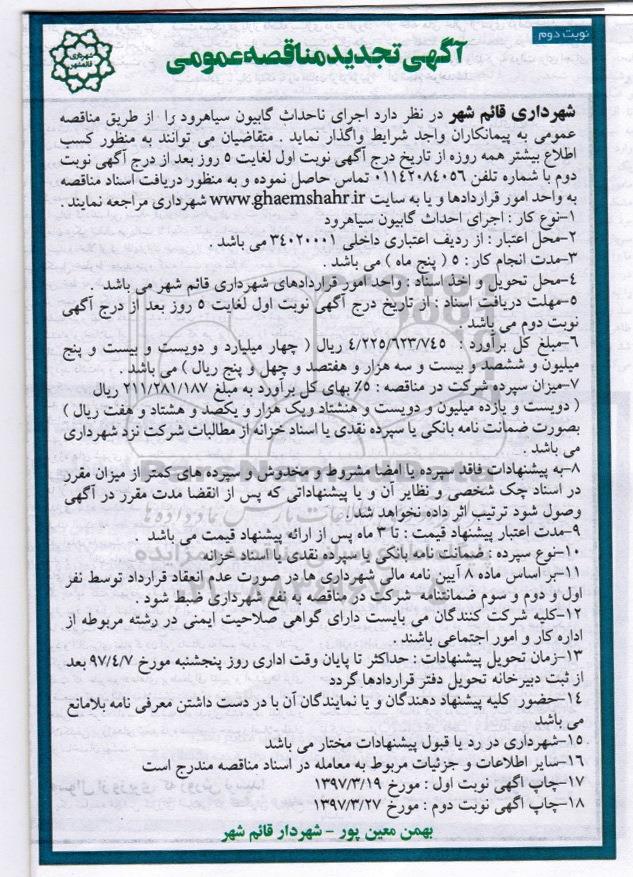 نوبت دوم
آگهی تجدید مناقصه عمومی
شهرداری قائم شهر در نظر دارد اجرای ناحداث گابیون سیاهرود را از طریق مناقصه
عمومی به پیمانکاران واجد شرایط واگذار نماید . متقاضیان می توانند به منظور کسب
اطلاع بیشتر همه روزه از تاریخ درج آگهی نوبت اول لغایت ۵ روز بعد از درج آگهی نوبت
دوم با شماره تلفن ۰۱۱۴۲۰۸۴۰۵۶ تماس حاصل نموده و به منظور دریافت اسناد مناقصه
به واحد امور قراردادها و یا به سایت www.ghaemshahr.ir شهرداری مراجعه نمایند .
۱-نوع کار : اجرای احداث گابیون سیاهرود
۲-محل اعتبار : از ردیف اعتباری داخلی ۳۴۰۲۰۰۰۱ می باشد .
۳-مدت انجام کار : ۵ ( پنج ماه ) می باشد .
۴-محل تحویل و اخذ اسناد : واحد امور قراردادهای شهرداری قائم شهر می باشد .
۵-مهلت دریافت اسناد : از تاریخ درج آگهی نوبت اول لغایت ۵ روز بعد از درج آگهی
نوبت دوم می باشد .
۶-مبلغ کل برآورد : ۴/۲۲۵/۶۲۳/۷۴۵ ریال ( چهار میلیارد و دویست و بیست و پنج
میلیون و ششصد و بیست و سه هزار و هفتصد و چهل و پنج ریال ) می باشد .
۷-میزان سپرده شرکت در مناقصه : ۵٪ بهای کل برآورد به مبلغ ۲۱۱/۲۸۱/۱۸۷ ریال
( دویست و یازده میلیون و دویست و هشتاد ویک هزار و یکصد و هشتاد و هفت ریال )
بصورت ضمانت نامه بانکی یا سپرده نقدی یا اسناد خزانه از مطالبات شرکت نزد شهرداری
می باشد .
۸-به پیشنهادات فاقد سپرده یا امضا مشروط و مخدوش و سپرده های کمتر از میزان مقرر
در اسناد چک شخصی و نظایر آن و یا پیشنهاداتی که پس از انقضا مدت مقرر در آگهی
وصول شود ترتیب اثر داده نخواهد شد .
۹-مدت اعتبار پیشنهاد قیمت : تا ۳ ماه پس از ارائه پیشنهاد قیمت می باشد .
۱۰-نوع سپرده : ضمانت نامه بانکی یا سپرده نقدی یا اسناد خزانه
۱۱-بر اساس ماده ۸ آیین نامه مالی شهرداری ها در صورت عدم انعقاد قرارداد توسط نفر
اول و دوم و سوم ضمانتنامه شرکت در مناقصه به نفع شهرداری ضبط شود .
۱۲-کلیه شرکت کنندگان می بایست دارای گواهی صلاحیت ایمنی در رشته مربوطه از
اداره کار و امور اجتماعی باشند .
۱۳-زمان تحویل پیشنهادات : حداکثر تا پایان وقت اداری روز پنجشنبه مورخ ۹۷/۴/۷ بعد
از ثبت دبیرخانه تحویل دفتر قراردادها گردد
۱۴-حضور کلیه پیشنهاد دهندگان و یا نمایندگان آن با در دست داشتن معرفی نامه بلامانع
می باشد
۱۵-شهرداری در رد یا قبول پیشنهادات مختار می باشد
۱۶-سایر اطلاعات و جزئیات مربوط به معامله در اسناد مناقصه مندرج است
۱۷-چاپ آگهی نوبت اول : مورخ ۱۳۹۷/۳/۱۹
۱۸-چاپ آگهی نوبت دوم : مورخ ۱۳۹۷/۳/۲۷
بهمن معین پور - شهردار قائم شهر